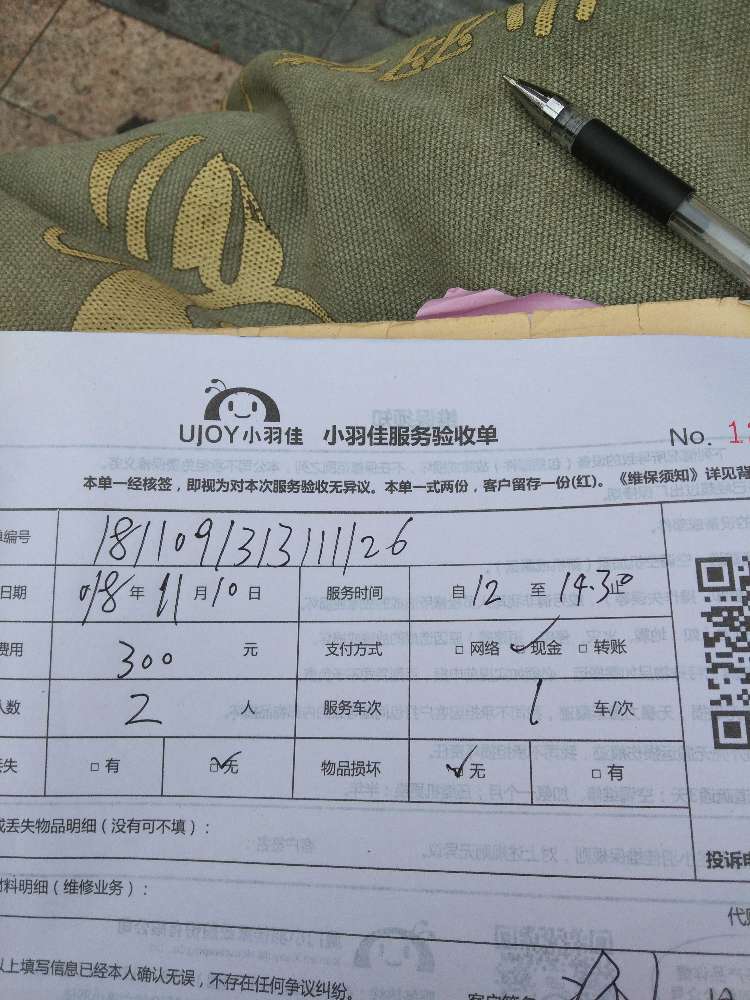 UJOY小羽佳 小羽佳服务验收单 No. 1
本单一经核签，即视为对本次服务验收无异议。本单一式两份，客户留存一份(红)。《维保须知》详见背
单编号 181109131311126
日期 018年11月10日 服务时间 自12至14.30止
费用 300 元 支付方式 □网络 ☑现金 □转账
人数 2 人 服务车次 1 车/次
丢失 □有 ☑无 物品损坏 ☑无 □有
或丢失物品明细（没有可不填）：
投诉电
材料明细（维修业务）：
代
以上填写信息已经本人确认无误，不存在任何争议纠纷。
客户签名